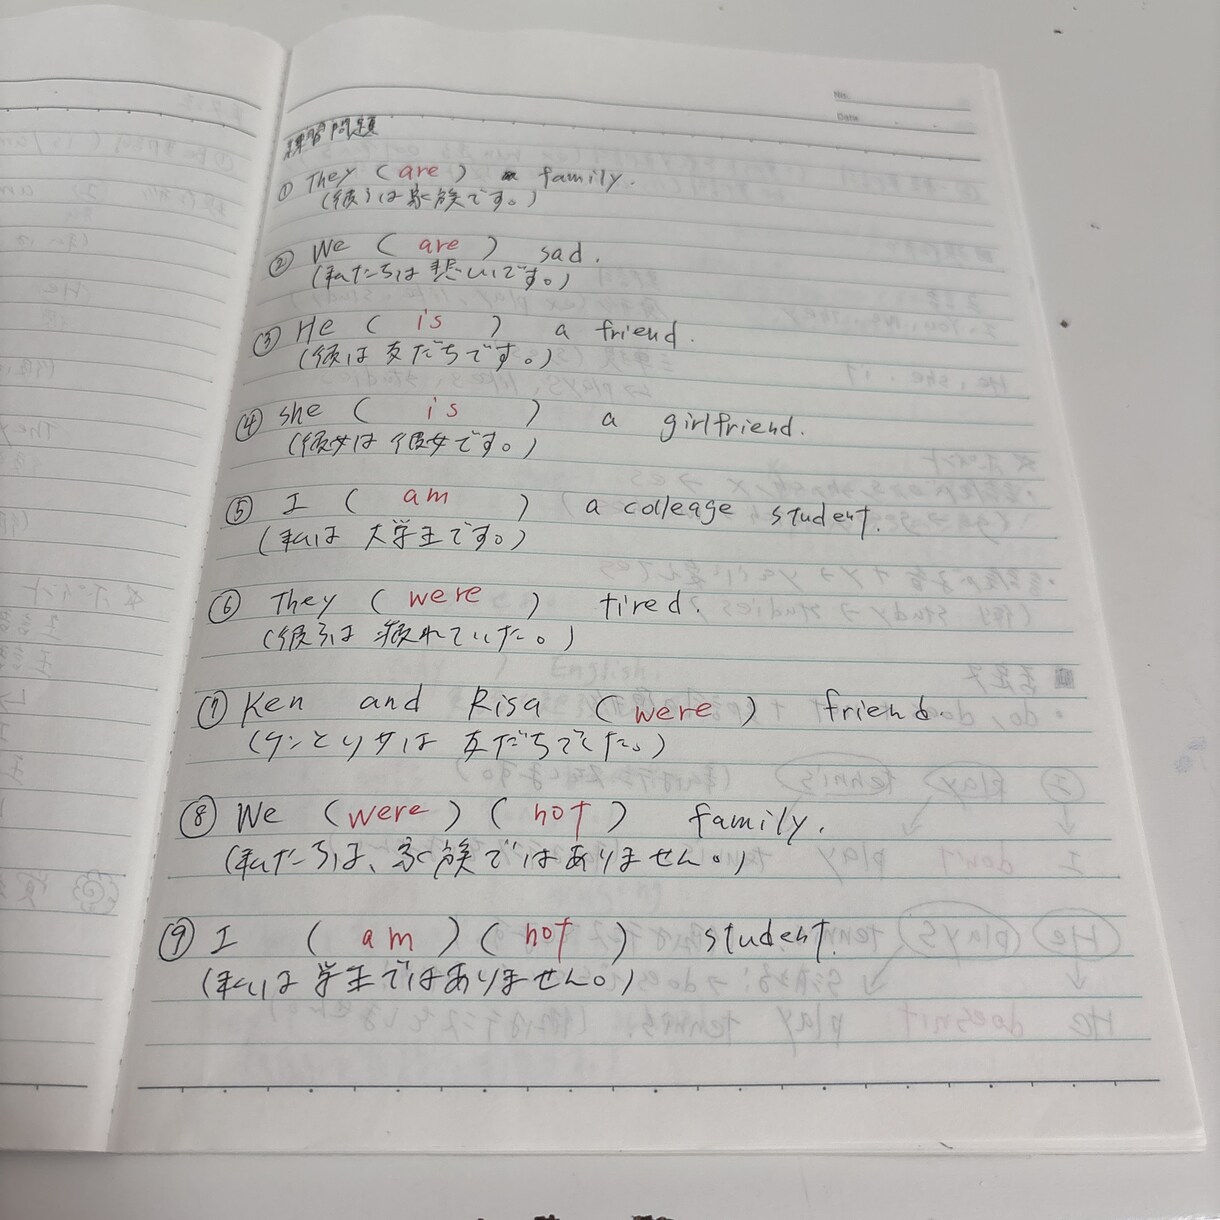 No.
Date
練習問題
① They ( are ) a family.
(彼らは家族です。)
② We ( are ) sad.
(私たちは悲しいです。)
③ He ( is ) a friend.
(彼は友だちです。)
④ she ( is ) a girlfriend.
(彼女は彼女です。)
⑤ I ( am ) a colleage student.
(私は大学生です。)
⑥ They ( were ) tired.
(彼らは疲れていた。)
⑦ Ken and Risa ( were ) friend.
(ケンとリサは友だちでした。)
⑧ We ( were ) ( not ) family.
(私たちは、家族ではありません。)
⑨ I ( am ) ( not ) student.
(私は学生ではありません。)